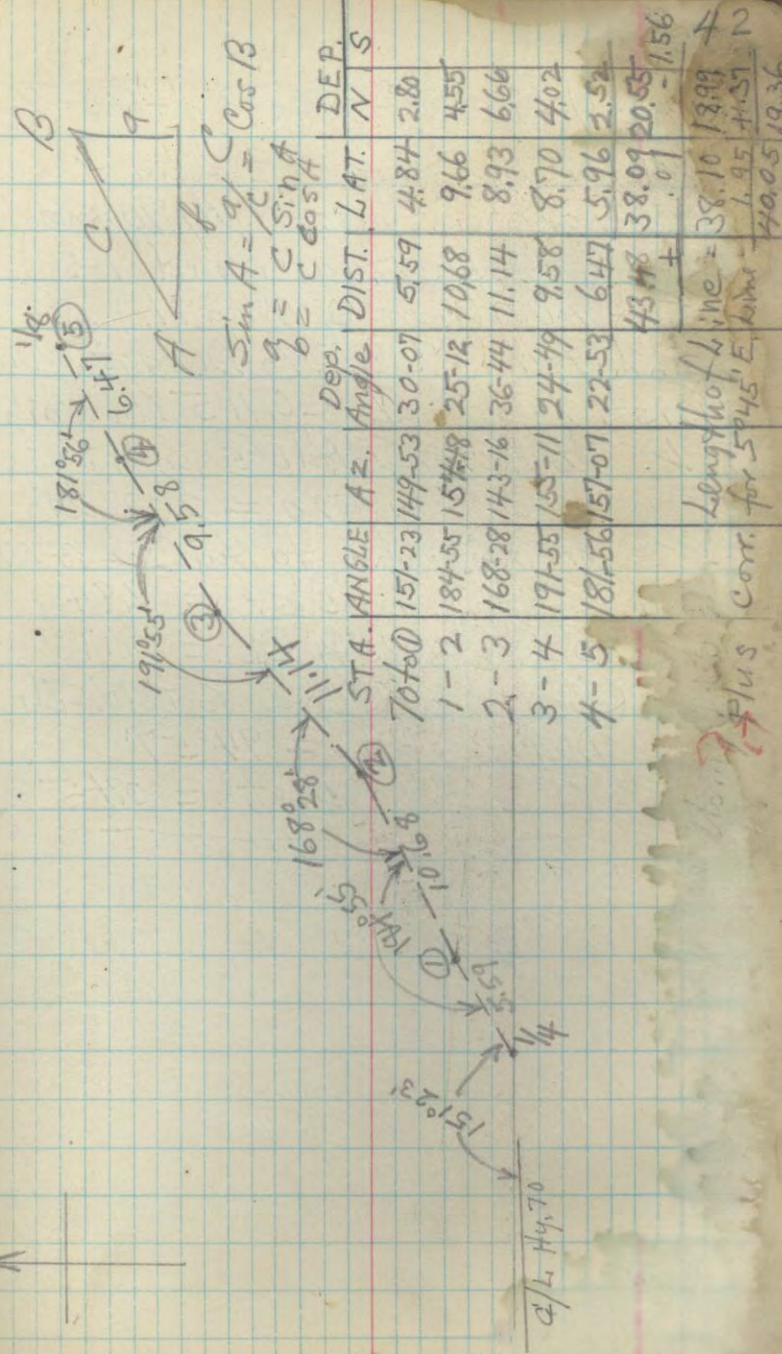 42
1/8
⑤
181°56'
6.47
④
9.58
191°55'
③
11.14
168°28'
②
184°55'
10.68
①
5.59
1/4
151°23'
C/L Hy. 70
B
C
a
A
b
Sin A = a/c = Cos B
a = C Sin A
b = C Cos A
STA. ANGLE Az. Dep. Angle DIST. LAT. DEP. N S
70 to ① 151-23 149-53 30-07 5.59 4.84 2.80
1 - 2 184-55 154-48 25-12 10.68 9.66 4.55
2 - 3 168-28 143-16 36-44 11.14 8.93 6.66
3 - 4 191-55 155-11 24-49 9.58 8.70 4.02
4 - 5 181-56 157-07 22-53 6.47 5.96 2.52
38.09 20.55
± .01 - 1.56
Length of Line = 38.10 18.99
Plus Corr. for 5°45' E. Line 1.95